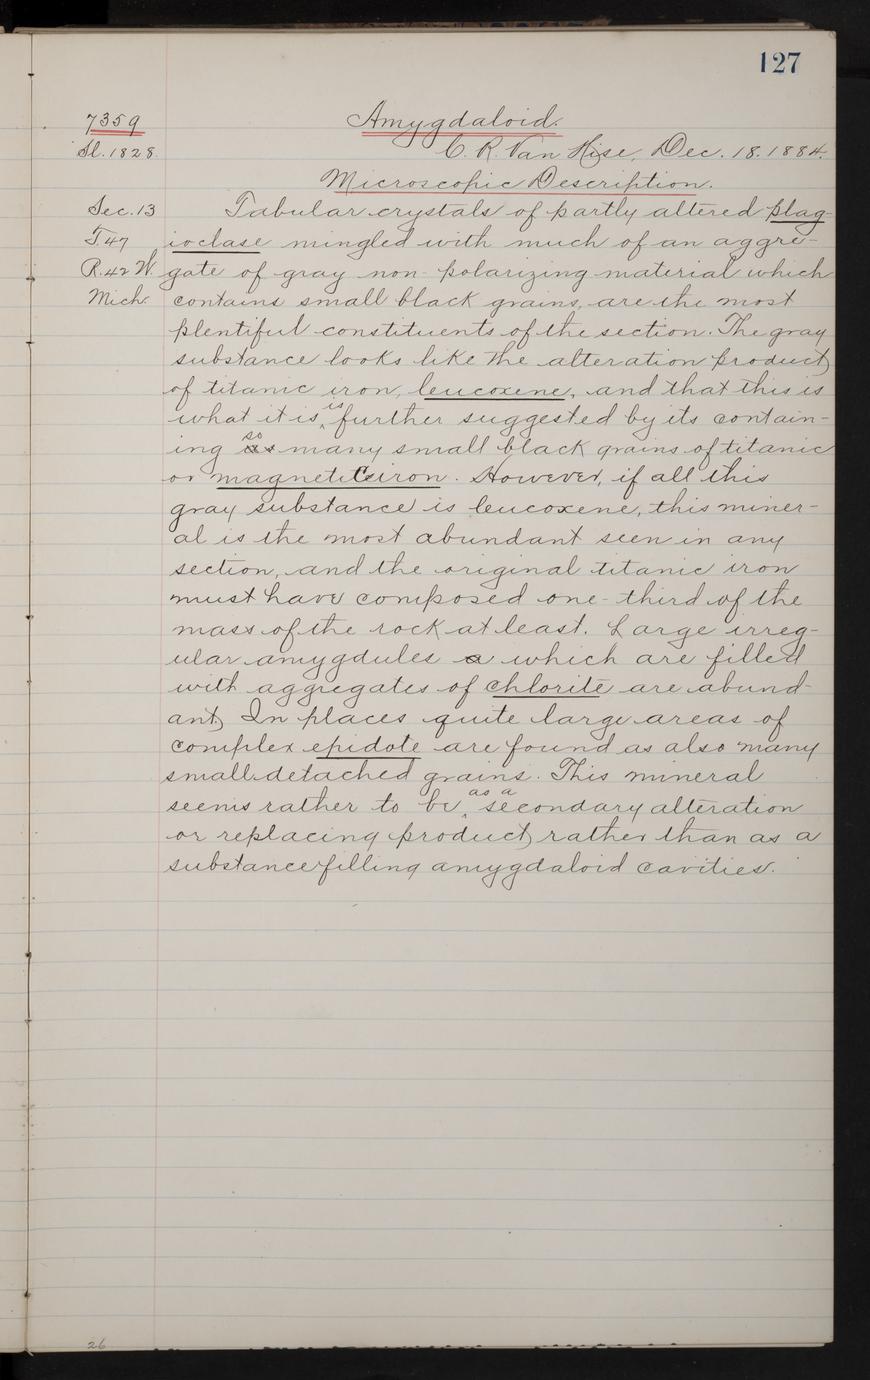 127
7359
Amygdaloid.
Sl. 1828.
C. R. Van Hise, Dec. 18. 1884.
Microscopic Description.
Sec. 13
Tabular crystals of partly altered plag-
T. 47
ioclase mingled with much of an aggre-
R. 42 W.
gate of gray non-polarizing material which
Mich.
contains small black grains, are the most
plentiful constituents of the section. The gray
substance looks like the alteration product
of titanic iron, leucoxene, and that this is
what it is, is further suggested by its contain-
ing so many small black grains of titanic
or magnetic iron. However, if all this
gray substance is leucoxene, this miner-
al is the most abundant seen in any
section, and the original titanic iron
must have composed one-third of the
mass of the rock at least. Large irreg-
ular amygdules which are filled
with aggregates of chlorite are abund-
ant, In places quite large areas of
complex epidote are found as also many
small detached grains. This mineral
seems rather to be as a secondary alteration
or replacing product, rather than as a
substance filling amygdaloid cavities.
26